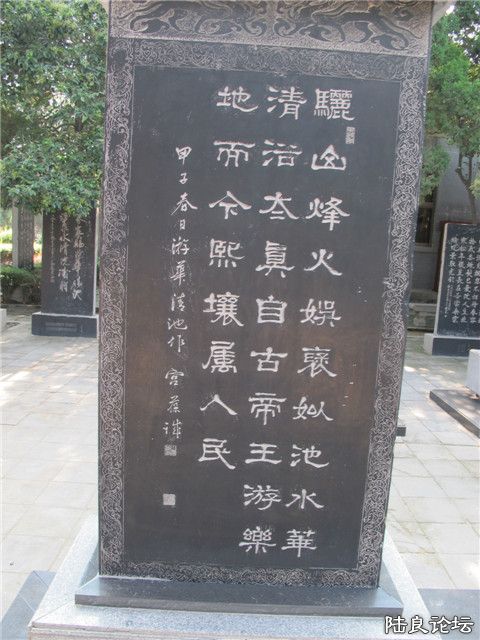 驪山烽火娛褒姒池水華
清浴太真自古帝王游樂
地而今熙壤屬人民
甲子春日游華清池作 宫葆诚
陆良论坛